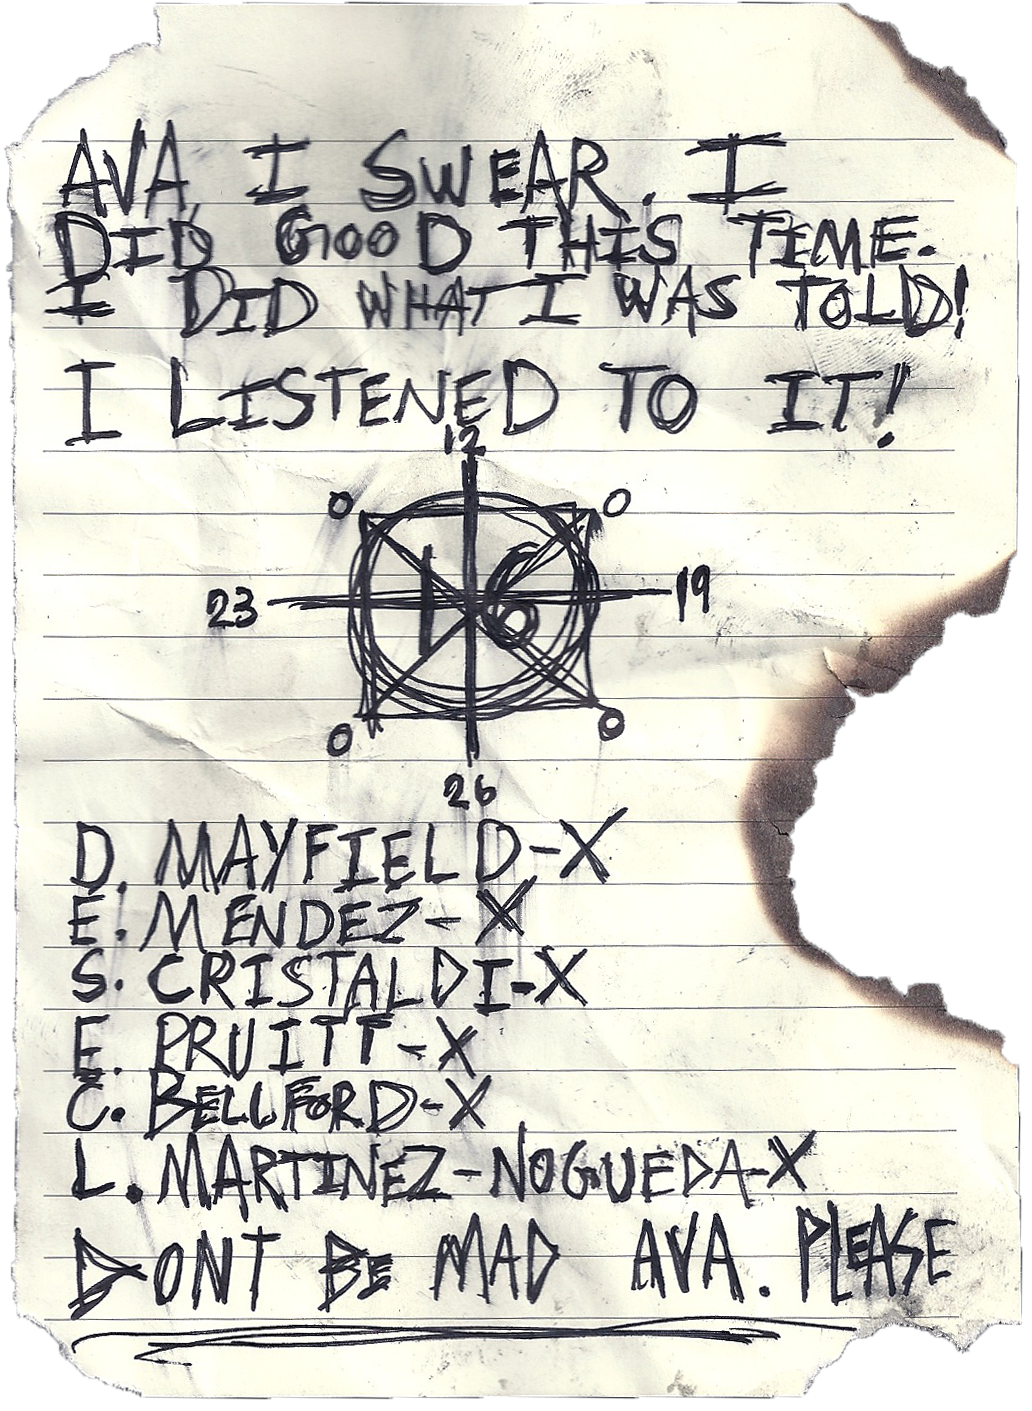 AVA, I SWEAR. I
DID GOOD THIS TIME.
I DID WHAT I WAS TOLD!
I LISTENED TO IT!
12
O O
16
23 19
O O
26
D. MAYFIELD-X
E. MENDEZ-X
S. CRISTALDI-X
E. PRUITT-X
C. BELLFORD-X
L. MARTINEZ-NOGUEDA-X
DONT BE MAD AVA. PLEASE